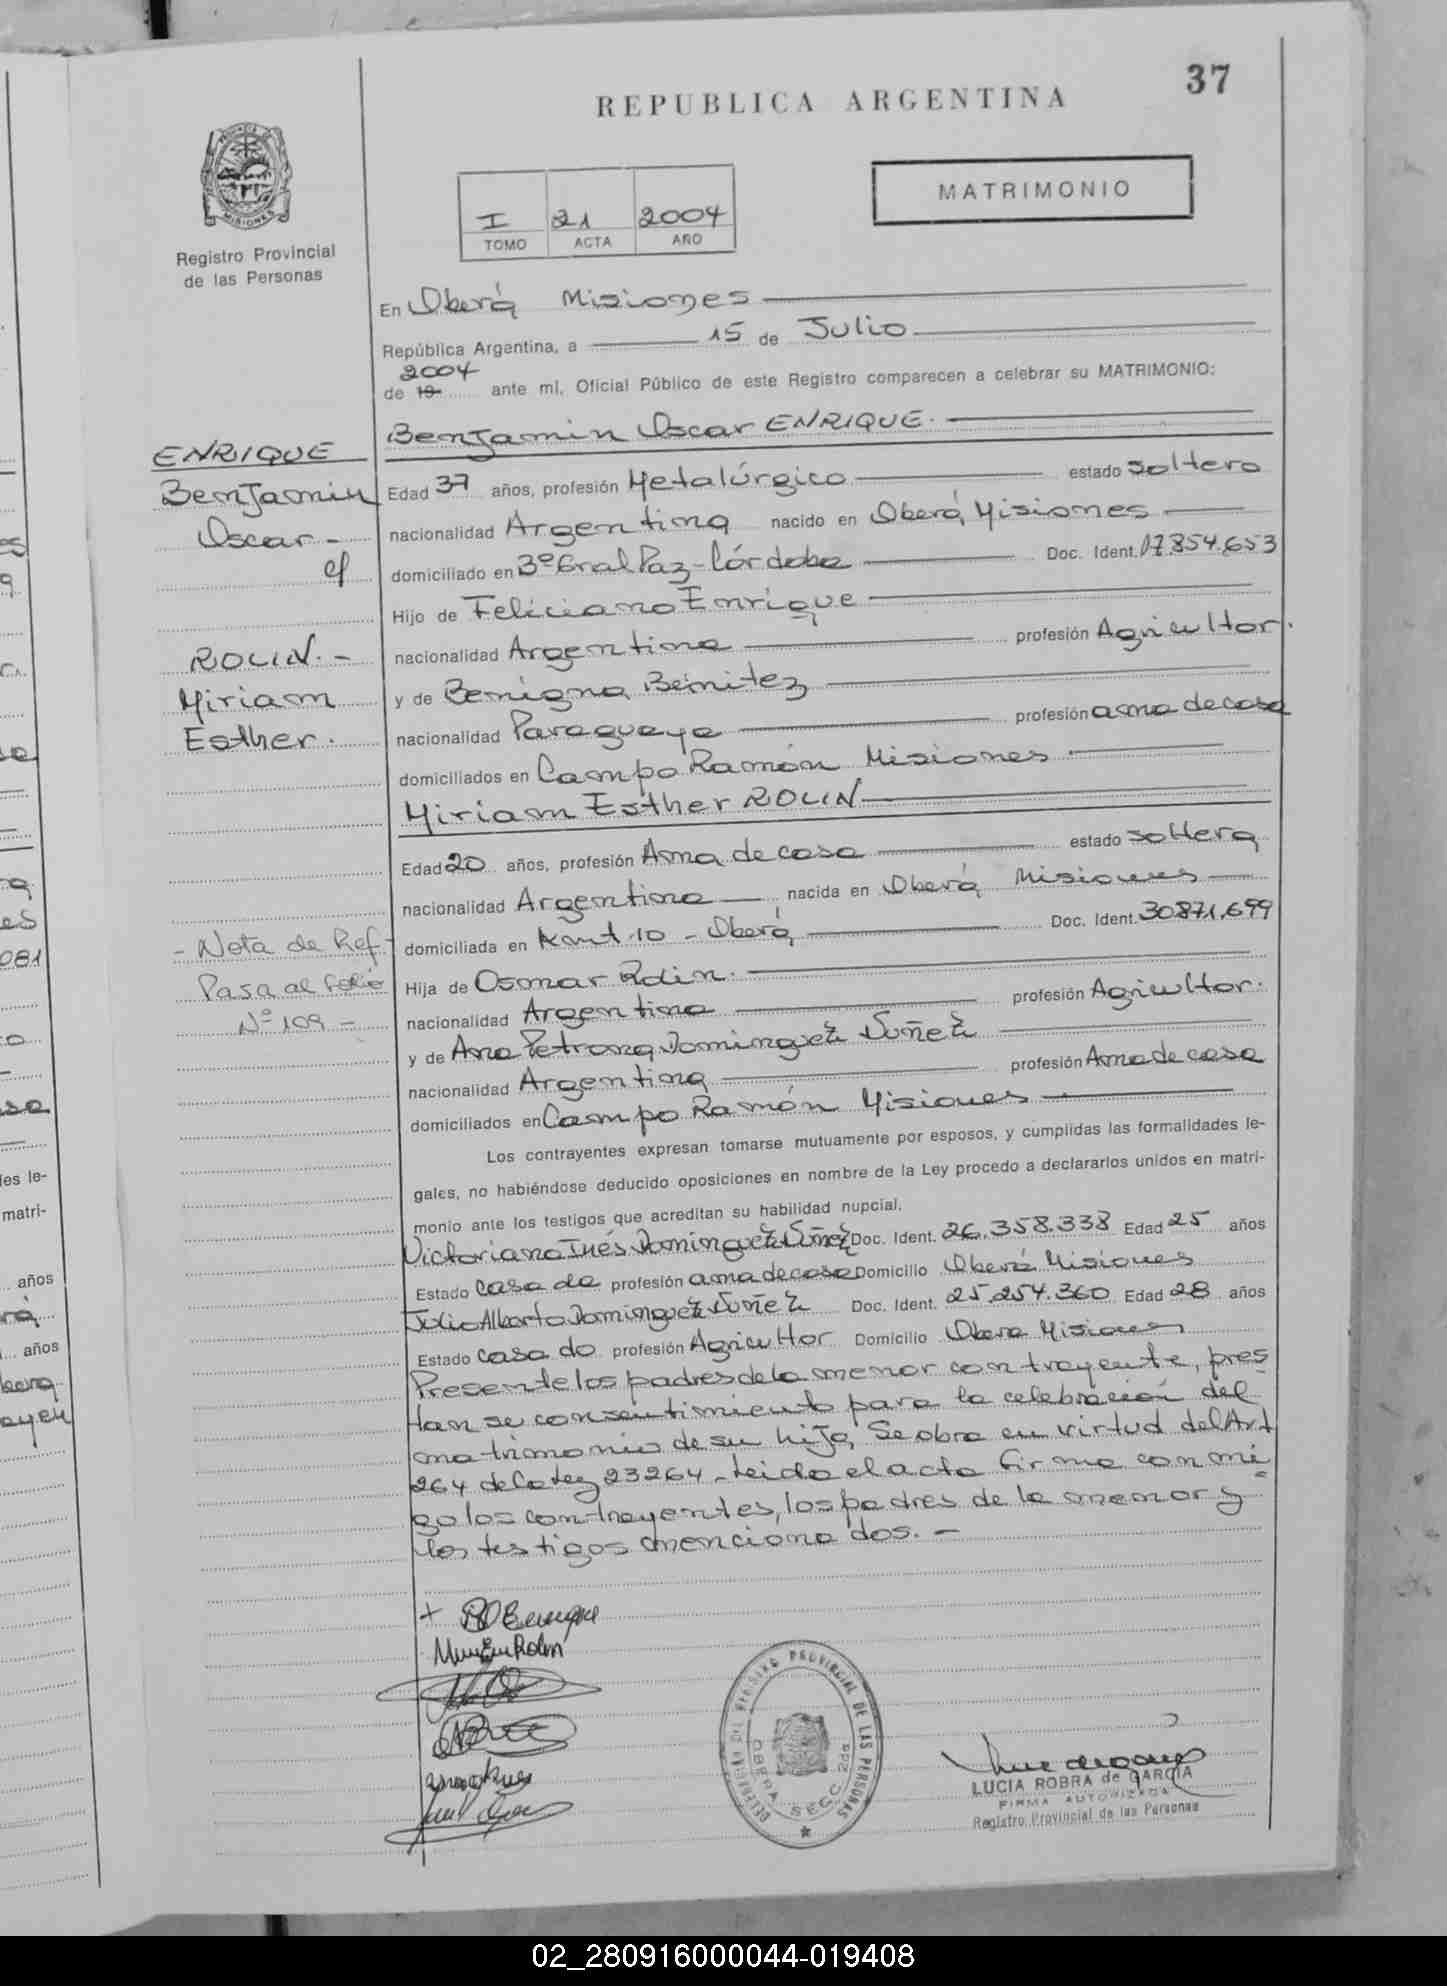 37
REPUBLICA ARGENTINA
MATRIMONIO
I 21 2004
TOMO ACTA AÑO
PROVINCIA DE MISIONES
Registro Provincial
de las Personas
En Oberá Misiones
República Argentina, a 15 de Julio
2004
de 19 ante mí, Oficial Público de este Registro comparecen a celebrar su MATRIMONIO:
Benjamin Oscar ENRIQUE.
ENRIQUE
Benjamin
Oscar -
c/
ROLIN. -
Miriam
Esther.
Edad 37 años, profesión Metalúrgico estado soltero
nacionalidad Argentina nacido en Oberá, Misiones
domiciliado en 3º Gral Paz - Córdoba Doc. Ident. 17.854.653
Hijo de Feliciano Enrique
nacionalidad Argentina profesión Agricultor.
y de Benigna Beinitez
nacionalidad Paraguaya profesión ama de casa
domiciliados en Campo Ramón Misiones
Miriam Esther ROLIN
Edad 20 años, profesión Ama de casa estado soltera
nacionalidad Argentina nacida en Oberá Misiones
domiciliada en Kmt. 10 - Oberá Doc. Ident. 30871.699
- Nota de Ref -
Pasa al folio
Nº 109 -
Hija de Osmar Rolin.
nacionalidad Argentina profesión Agricultor.
y de Ana Petrona Dominguez Nuñez
nacionalidad Argentina profesión Ama de casa
domiciliados en Campo Ramón Misiones
Los contrayentes expresan tomarse mutuamente por esposos, y cumplidas las formalidades le-
gales, no habiéndose deducido oposiciones en nombre de la Ley procedo a declararlos unidos en matri-
monio ante los testigos que acreditan su habilidad nupcial.
Victoriana Inés Dominguez Nuñez Doc. Ident. 26.358.338 Edad 25 años
Estado casada profesión ama de casa Domicilio Oberá Misiones
Julio Alberto Dominguez Nuñez Doc. Ident. 25.254.360 Edad 28 años
Estado casado profesión Agricultor Domicilio Obera Misiones
Presente los padres de la menor contrayente, pres
tan su consentimiento para la celebración del
matrimonio de su hija, Se obra en virtud del Art
264 de la Ley 23264 - Leida el acta firma con mi
go los contrayentes, los padres de la menor y
los testigos mencionados. -
DELEGACION DEL REGISTRO PROVINCIAL DE LAS PERSONAS
OBERA SECC. 2da
LUCIA ROBRA de GARCIA
FIRMA AUTORIZADA
Registro Provincial de las Personas
02_280916000044-019408